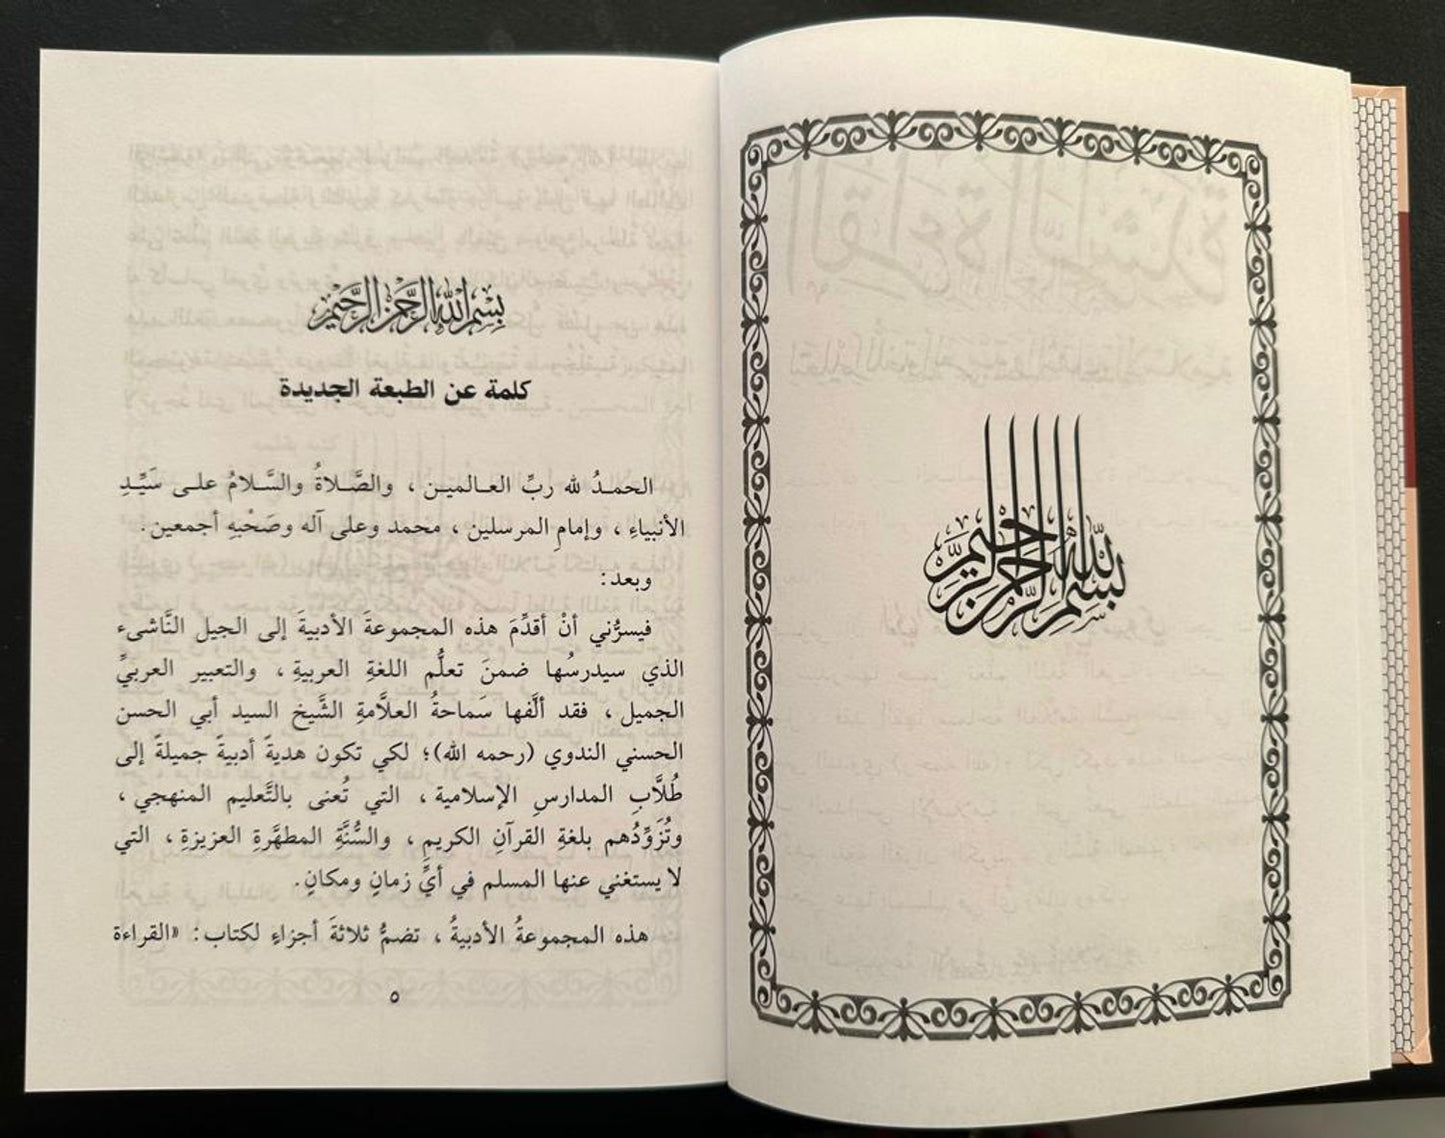 بسم الله الرحمن الرحيم
بسم الله الرحمن الرحيم
كلمة عن الطبعة الجديدة
الحمدُ لله ربِّ العالمين ، والصَّلاةُ والسَّلامُ على سَيِّدِ
الأنبياءِ ، وإمامِ المرسلين ، محمد وعلى آله وصَحْبهِ أجمعين .
وبعد :
فيسرُّني أنْ أقدِّمَ هذه المجموعةَ الأدبيةَ إلى الجيل النَّاشىء
الذي سيدرسُها ضمنَ تعلُّم اللغةِ العربيةِ ، والتعبير العربيِّ
الجميل ، فقد ألَّفها سَماحةُ العلاَّمةِ الشَّيخ السيد أبي الحسن
الحسني الندوي (رحمه الله)؛ لكي تكون هديةً أدبيةً جميلةً إلى
طُلَّابِ المدارسِ الإسلامية ، التي تُعنى بالتَّعليم المنهجي ،
وتُزَوِّدُهم بلغةِ القرآنِ الكريمِ ، والسُّنَّةِ المطهَّرةِ العزيزةِ ، التي
لا يستغني عنها المسلم في أيِّ زمانٍ ومكانٍ .
هذه المجموعةُ الأدبيةُ ، تضمُّ ثلاثةَ أجزاءٍ لكتاب : «القراءة
٥